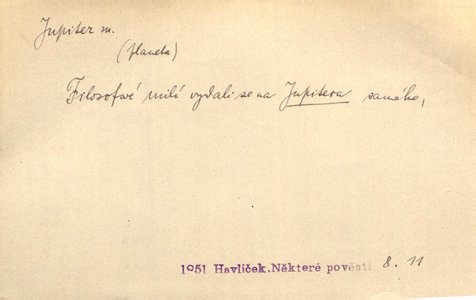 Jupiter m.
(planeta)
Filosofové milí vydali se na Jupitera samého,
1851 Havlíček.Některé pověsti 8. 11